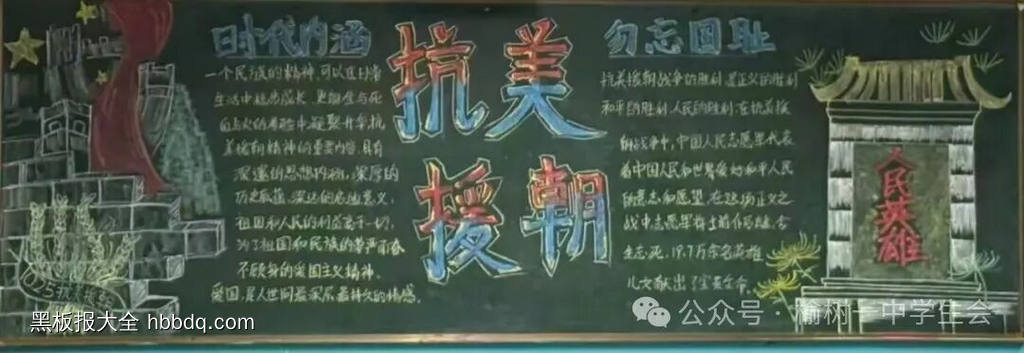 时代内涵
一个民族的精神，可以在日常
生活中稳步成长，更能在与死
而与火的考验中凝聚升华，抗
美援朝精神的重要内容，具有
深邃的思想内动，深厚的
历史底蕴，深远的意义，
祖国和人民的利益高于一切，
为了祖国和民族的尊严而奋
不顾身的爱国主义精神。
爱国，是人世间最深层、最持久的情感。
抗美
援朝
勿忘国耻
抗美援朝战争的胜利，是正义的胜利
和平的胜利，人民的胜利，在抗美援
朝战争中，中国人民志愿军代表
着中国人民和世界爱好和平人民
的意志和愿望，在这场正义之
战中志愿军将士前仆后继、舍
生忘死，19.7万余名英雄
儿女献出了宝贵生命。
人民英雄
黑板报大全 hbbdq.com
公众号·榆树一中学生会